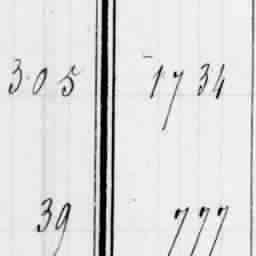 305 1734
39 777